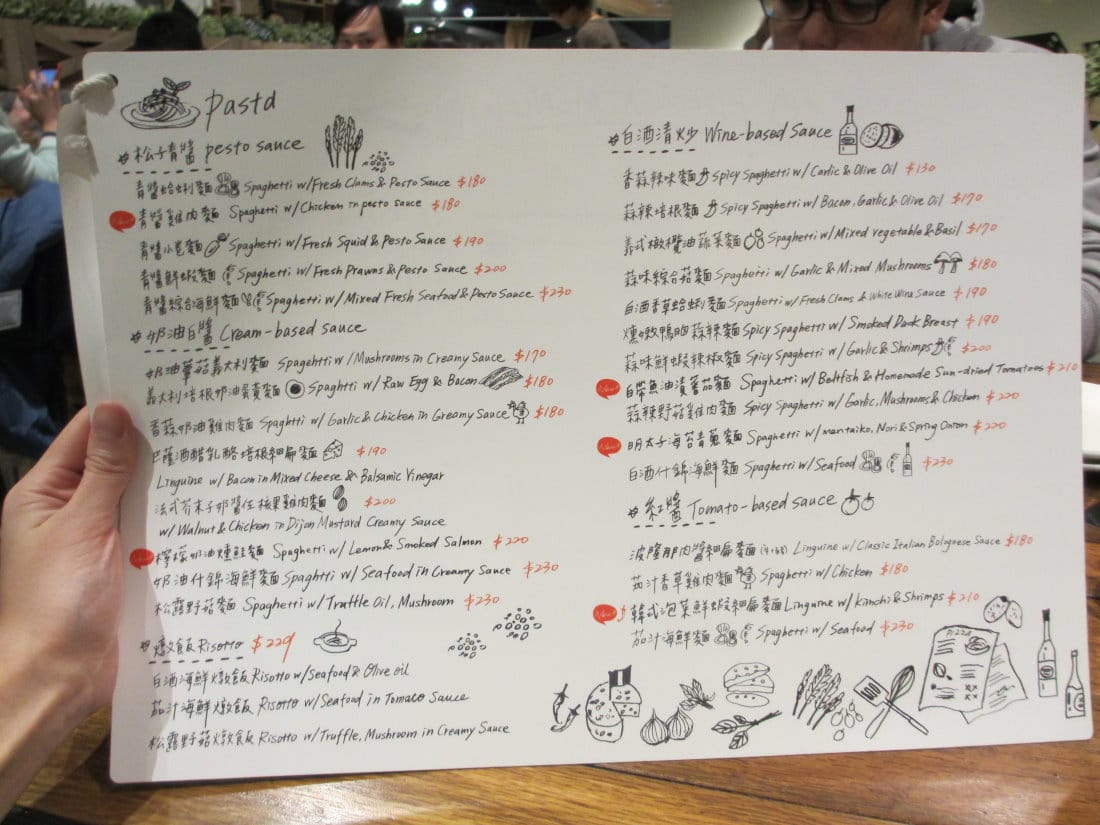 pasta
#松子青醬 pesto sauce
青醬蛤蜊麵 Spaghetti w/Fresh Clams & Pesto Sauce $180
New! 青醬雞肉麵 Spaghetti w/Chicken in pesto sauce $180
青醬小卷麵 Spaghetti w/Fresh Squid & Pesto Sauce $190
青醬鮮蝦麵 Spaghetti w/Fresh Prawns & Pesto Sauce $200
青醬綜合海鮮麵 Spaghetti w/Mixed Fresh Seafood & Pesto Sauce $230
#奶油白醬 Cream-based sauce
奶油蘑菇義大利麵 Spagehtti w/Mushrooms in Creamy Sauce $170
義大利培根奶油蛋黃麵 Spaghtti w/Raw Egg & Bacon $180
香蒜奶油雞肉麵 Spaghtti w/Garlic & Chicken in Creamy Sauce $180
巴薩酒醋乳酪培根細扁麵 $190
Linguine w/Bacon in Mixed Cheese & Balsamic Vinegar
法式芥末子奶醬佐核果雞肉麵 $200
w/Walnut & Chicken in Dijon Mustard Creamy Sauce
New! 檸檬奶油燻鮭麵 Spaghetti w/Lemon & Smoked Salmon $220
奶油什錦海鮮麵 Spaghtti w/Seafood in Creamy Sauce $230
松露野菇麵 Spaghetti w/Truffle Oil, Mushroom $230
#燉飯 Risotto $229
白酒海鮮燉飯 Risotto w/Seafood & Olive oil
茄汁海鮮燉飯 Risotto w/Seafood in Tomato Sauce
松露野菇燉飯 Risotto w/Truffle, Mushroom in Creamy Sauce
#白酒清炒 Wine-based Sauce
香蒜辣味麵 Spicy Spaghetti w/Garlic & Olive Oil $130
蒜辣培根麵 Spicy Spaghetti w/Bacon, Garlic & Olive Oil $170
義式橄欖油蔬菜麵 Spaghetti w/Mixed vegetable & Basil $170
蒜味綜合菇麵 Spaghetti w/Garlic & Mixed Mushrooms $180
白酒香草蛤蜊麵 Spaghetti w/Fresh Clams & White Wine Sauce $190
燻嫩鴨胸蒜辣麵 Spicy Spaghetti w/Smoked Duck Breast $190
蒜味鮮蝦辣椒麵 Spicy Spaghetti w/Garlic & Shrimps $200
New! 白帶魚油漬番茄麵 Spaghetti w/Beltfish & Homemade Sun-dried Tomatoes $210
蒜辣野菇雞肉麵 Spicy Spaghetti w/Garlic, Mushrooms & Chicken $220
New! 明太子海苔青蔥麵 Spaghetti w/mentaiko, Nori & Spring Onion $220
白酒什錦海鮮麵 Spaghetti w/Seafood $230
#紅醬 Tomato-based sauce
波隆那肉醬細扁麵 Linguine w/Classic Italian Bolognese Sauce $180
茄汁香草雞肉麵 Spaghetti w/Chicken $180
New! 韓式泡菜鮮蝦細扁麵 Linguine w/kimchi & Shrimps $210
茄汁海鮮麵 Spaghetti w/Seafood $230
PIZZA